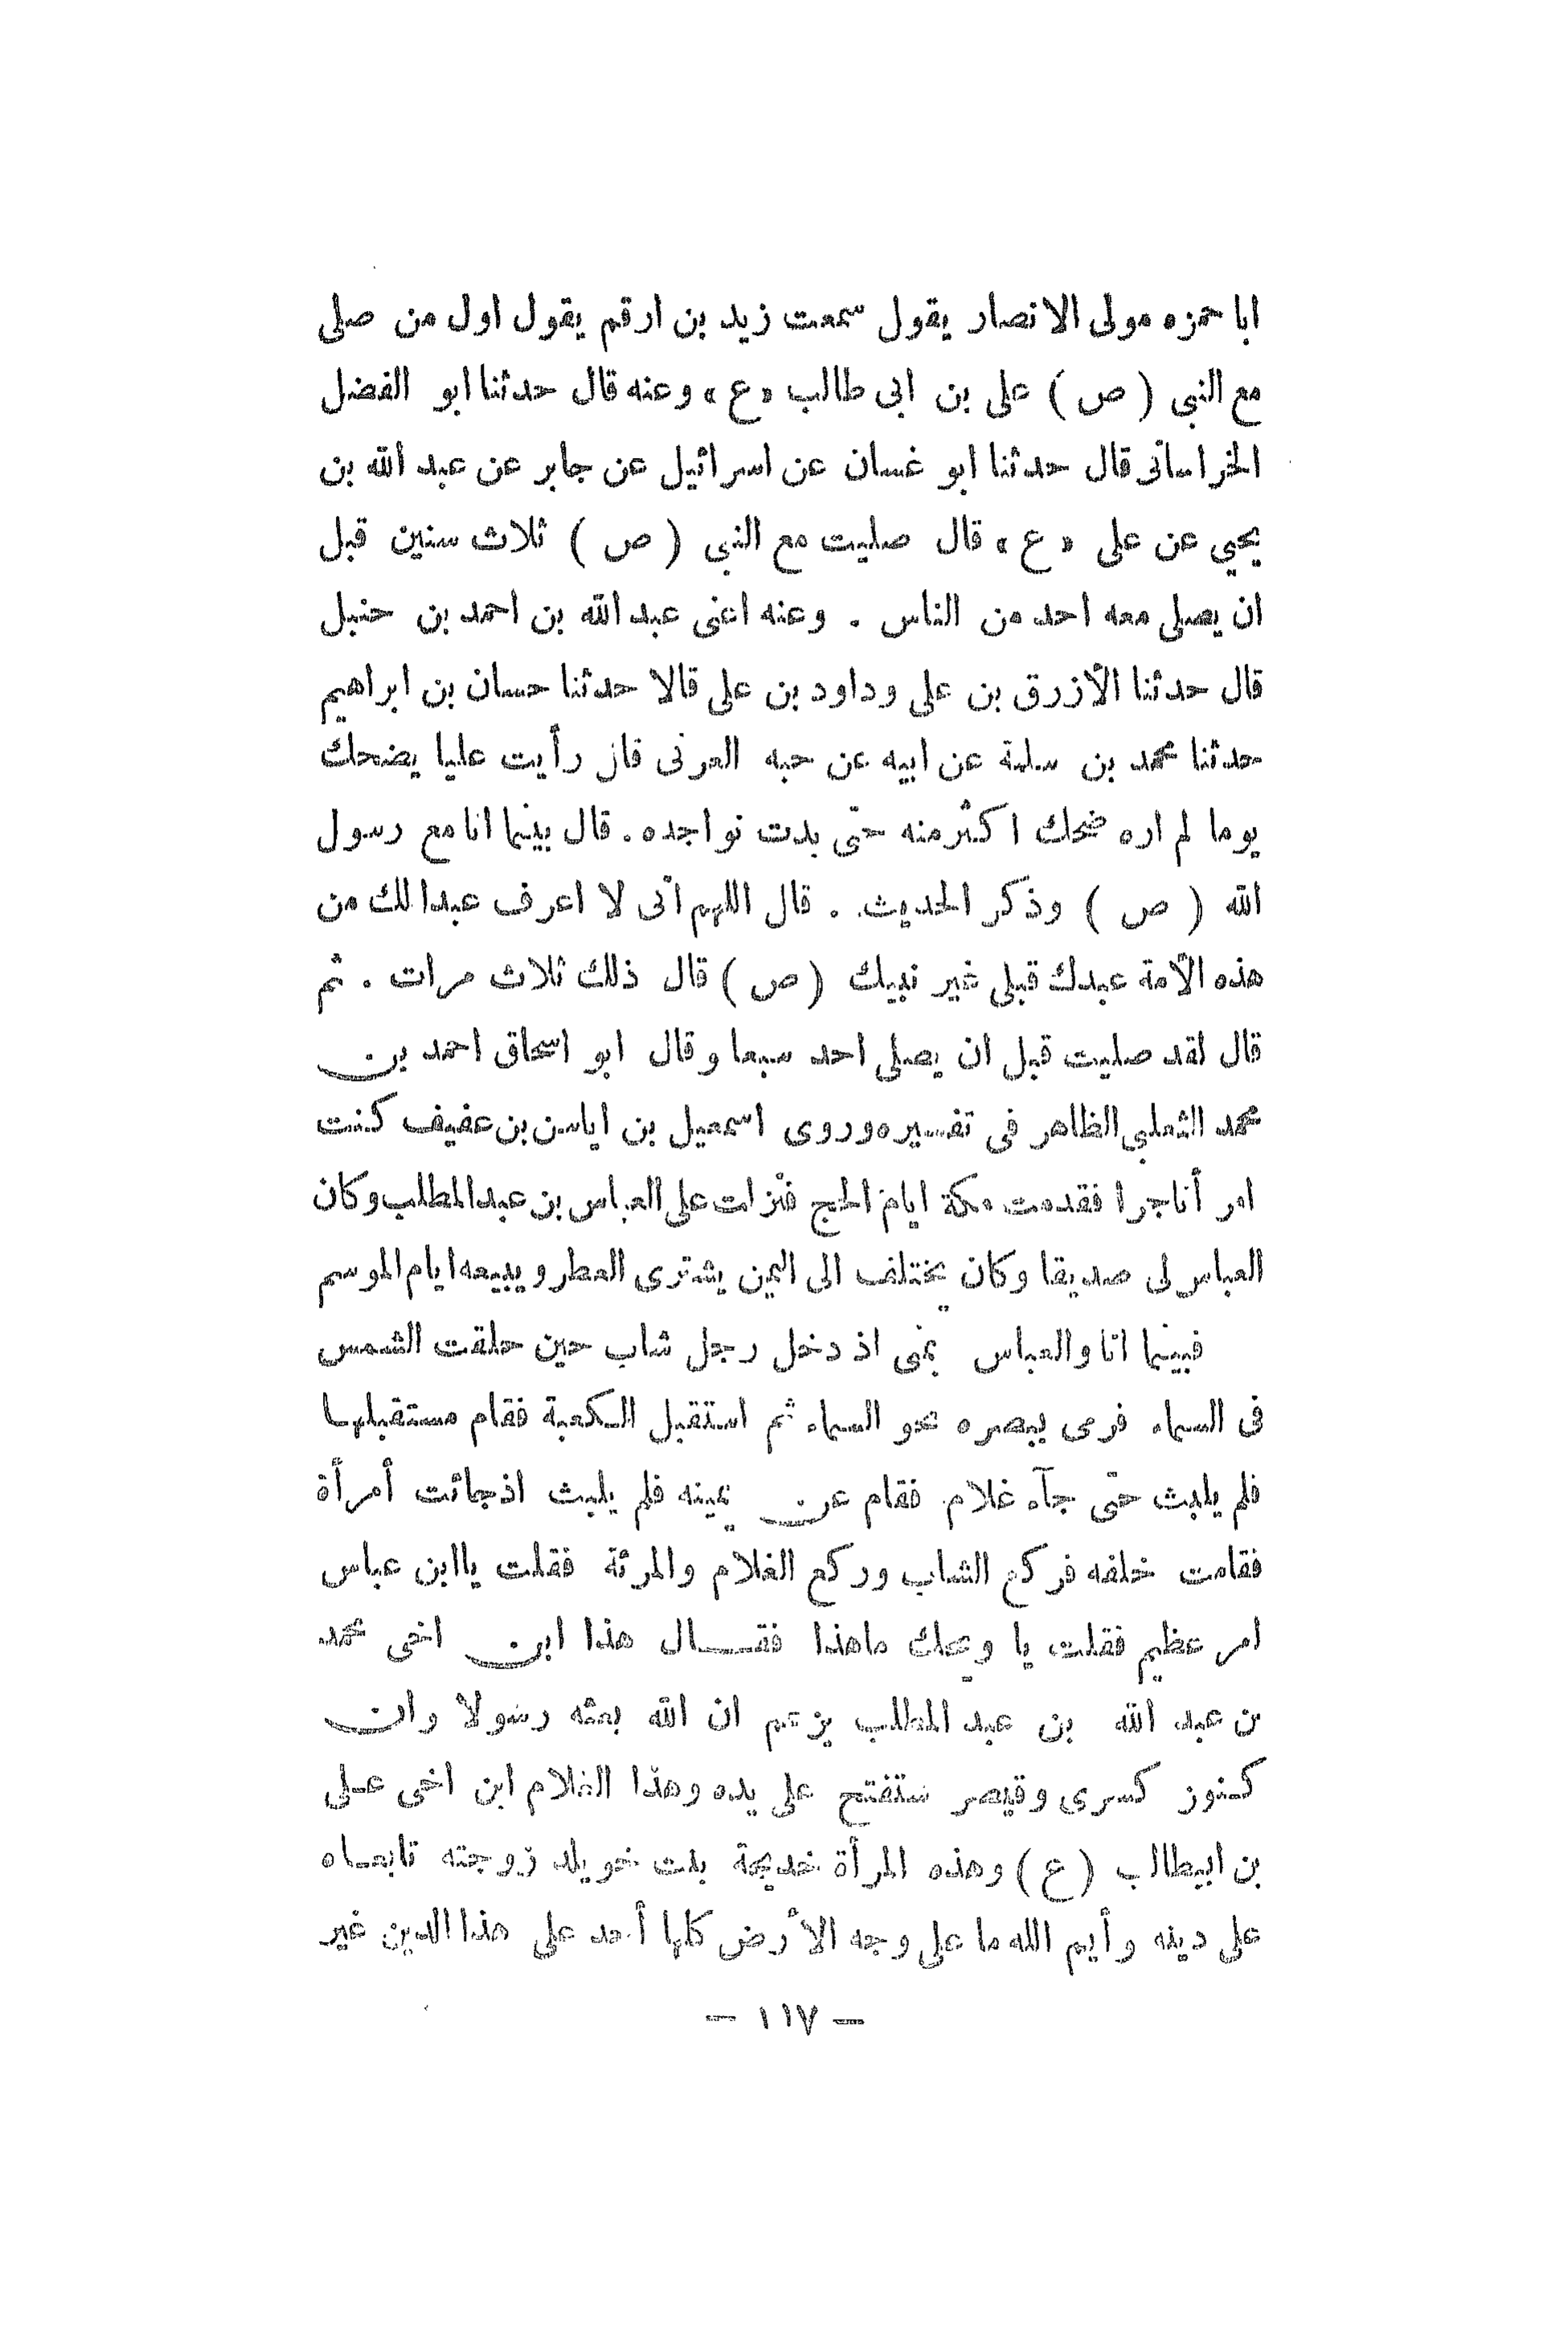 ابا حمزه مولى الانصار يقول سمعت زيد بن ارقم يقول اول من صلى
مع النبى ( ص ) على بن ابى طالب « ع » وعنه قال حدثنا ابو الفضل
الخراسانى قال حدثنا ابو غسان عن اسرائيل عن جابر عن عبد الله بن
يحيي عن على « ع » قال صليت مع النبى ( ص ) ثلاث سنين قبل
ان يصلى معه احد من الناس . وعنه اعنى عبد الله بن احمد بن حنبل
قال حدثنا الأزرق بن على وداود بن على قالا حدثنا حسان بن ابراهيم
حدثنا محمد بن سلمة عن ابيه عن حبه العرنى قال رأيت عليا يضحك
يوما لم اره ضحك اكثر منه حتى بدت نواجده . قال بينما انا مع رسول
الله ( ص ) وذكر الحديث . قال اللهم انى لا اعرف عبدا لك من
هذه الأمة عبدك قبلى غير نبيك ( ص ) قال ذلك ثلاث مرات . ثم
قال لقد صليت قبل ان يصلى احد سبعا وقال ابو اسحاق احمد بن
محمد الثعلبي الظاهر فى تفسيره وروى اسمعيل بن اياسن بن عفيف كنت
امر أتاجرا فقدمت مكة ايام الحج فنزلت على العباس بن عبد المطلب وكان
العباس لى صديقا وكان يختلف الى اليمن يشترى العطر ويبيعه ايام الموسم
فبينما انا والعباس بمنى اذ دخل رجل شاب حين حلقت الشمس
فى السماء فرمى ببصره نحو السماء ثم استقبل الكعبة فقام مستقبلها
فلم يلبث حتى جآء غلام فقام عن يمينه فلم يلبث اذجائت أمرأة
فقامت خلفه فركع الشاب وركع الغلام والمرئة فقلت ياابن عباس
امر عظيم فقلت يا ويحك ماهذا فقال هذا ابن اخى محمد
بن عبد الله بن عبد المطلب يزعم ان الله بعثه رسولا وان
كنوز كسرى وقيصر ستفتح على يده وهذا الغلام ابن اخى على
بن ابيطالب ( ع ) وهذه المرأة خديجة بنت خويلد زوجته تابعاه
على دينه وأيم الله ما على وجه الأرض كلها أحد على هذا الدين غير
— ١١٧ —